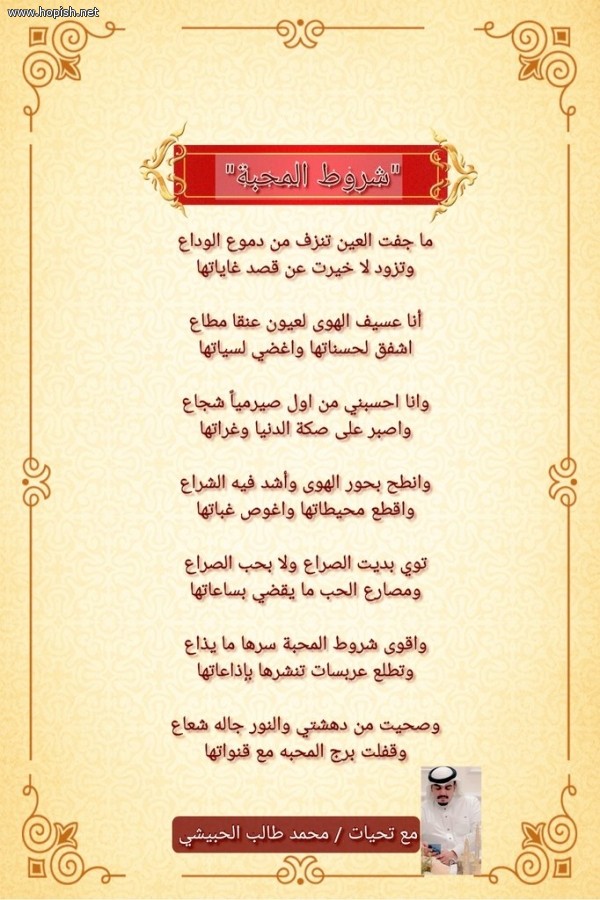 www.hopish.net
"شروط المحبة"
ما جفت العين تنزف من دموع الوداع
وتزود لا خيرت عن قصد غاياتها
أنا عسيف الهوى لعيون عنقا مطاع
اشفق لحسناتها واغضي لسياتها
وانا احسبني من اول صيرمياً شجاع
واصبر على صكة الدنيا وغراتها
وانطح بحور الهوى وأشد فيه الشراع
واقطع محيطاتها واغوص غباتها
توي بديت الصراع ولا بحب الصراع
ومصارع الحب ما يقضي بساعاتها
واقوى شروط المحبة سرها ما يذاع
وتطلع عربسات تنشرها بإذاعاتها
وصحيت من دهشتي والنور جاله شعاع
وقفلت برج المحبه مع قنواتها
مع تحيات / محمد طالب الحبيشي